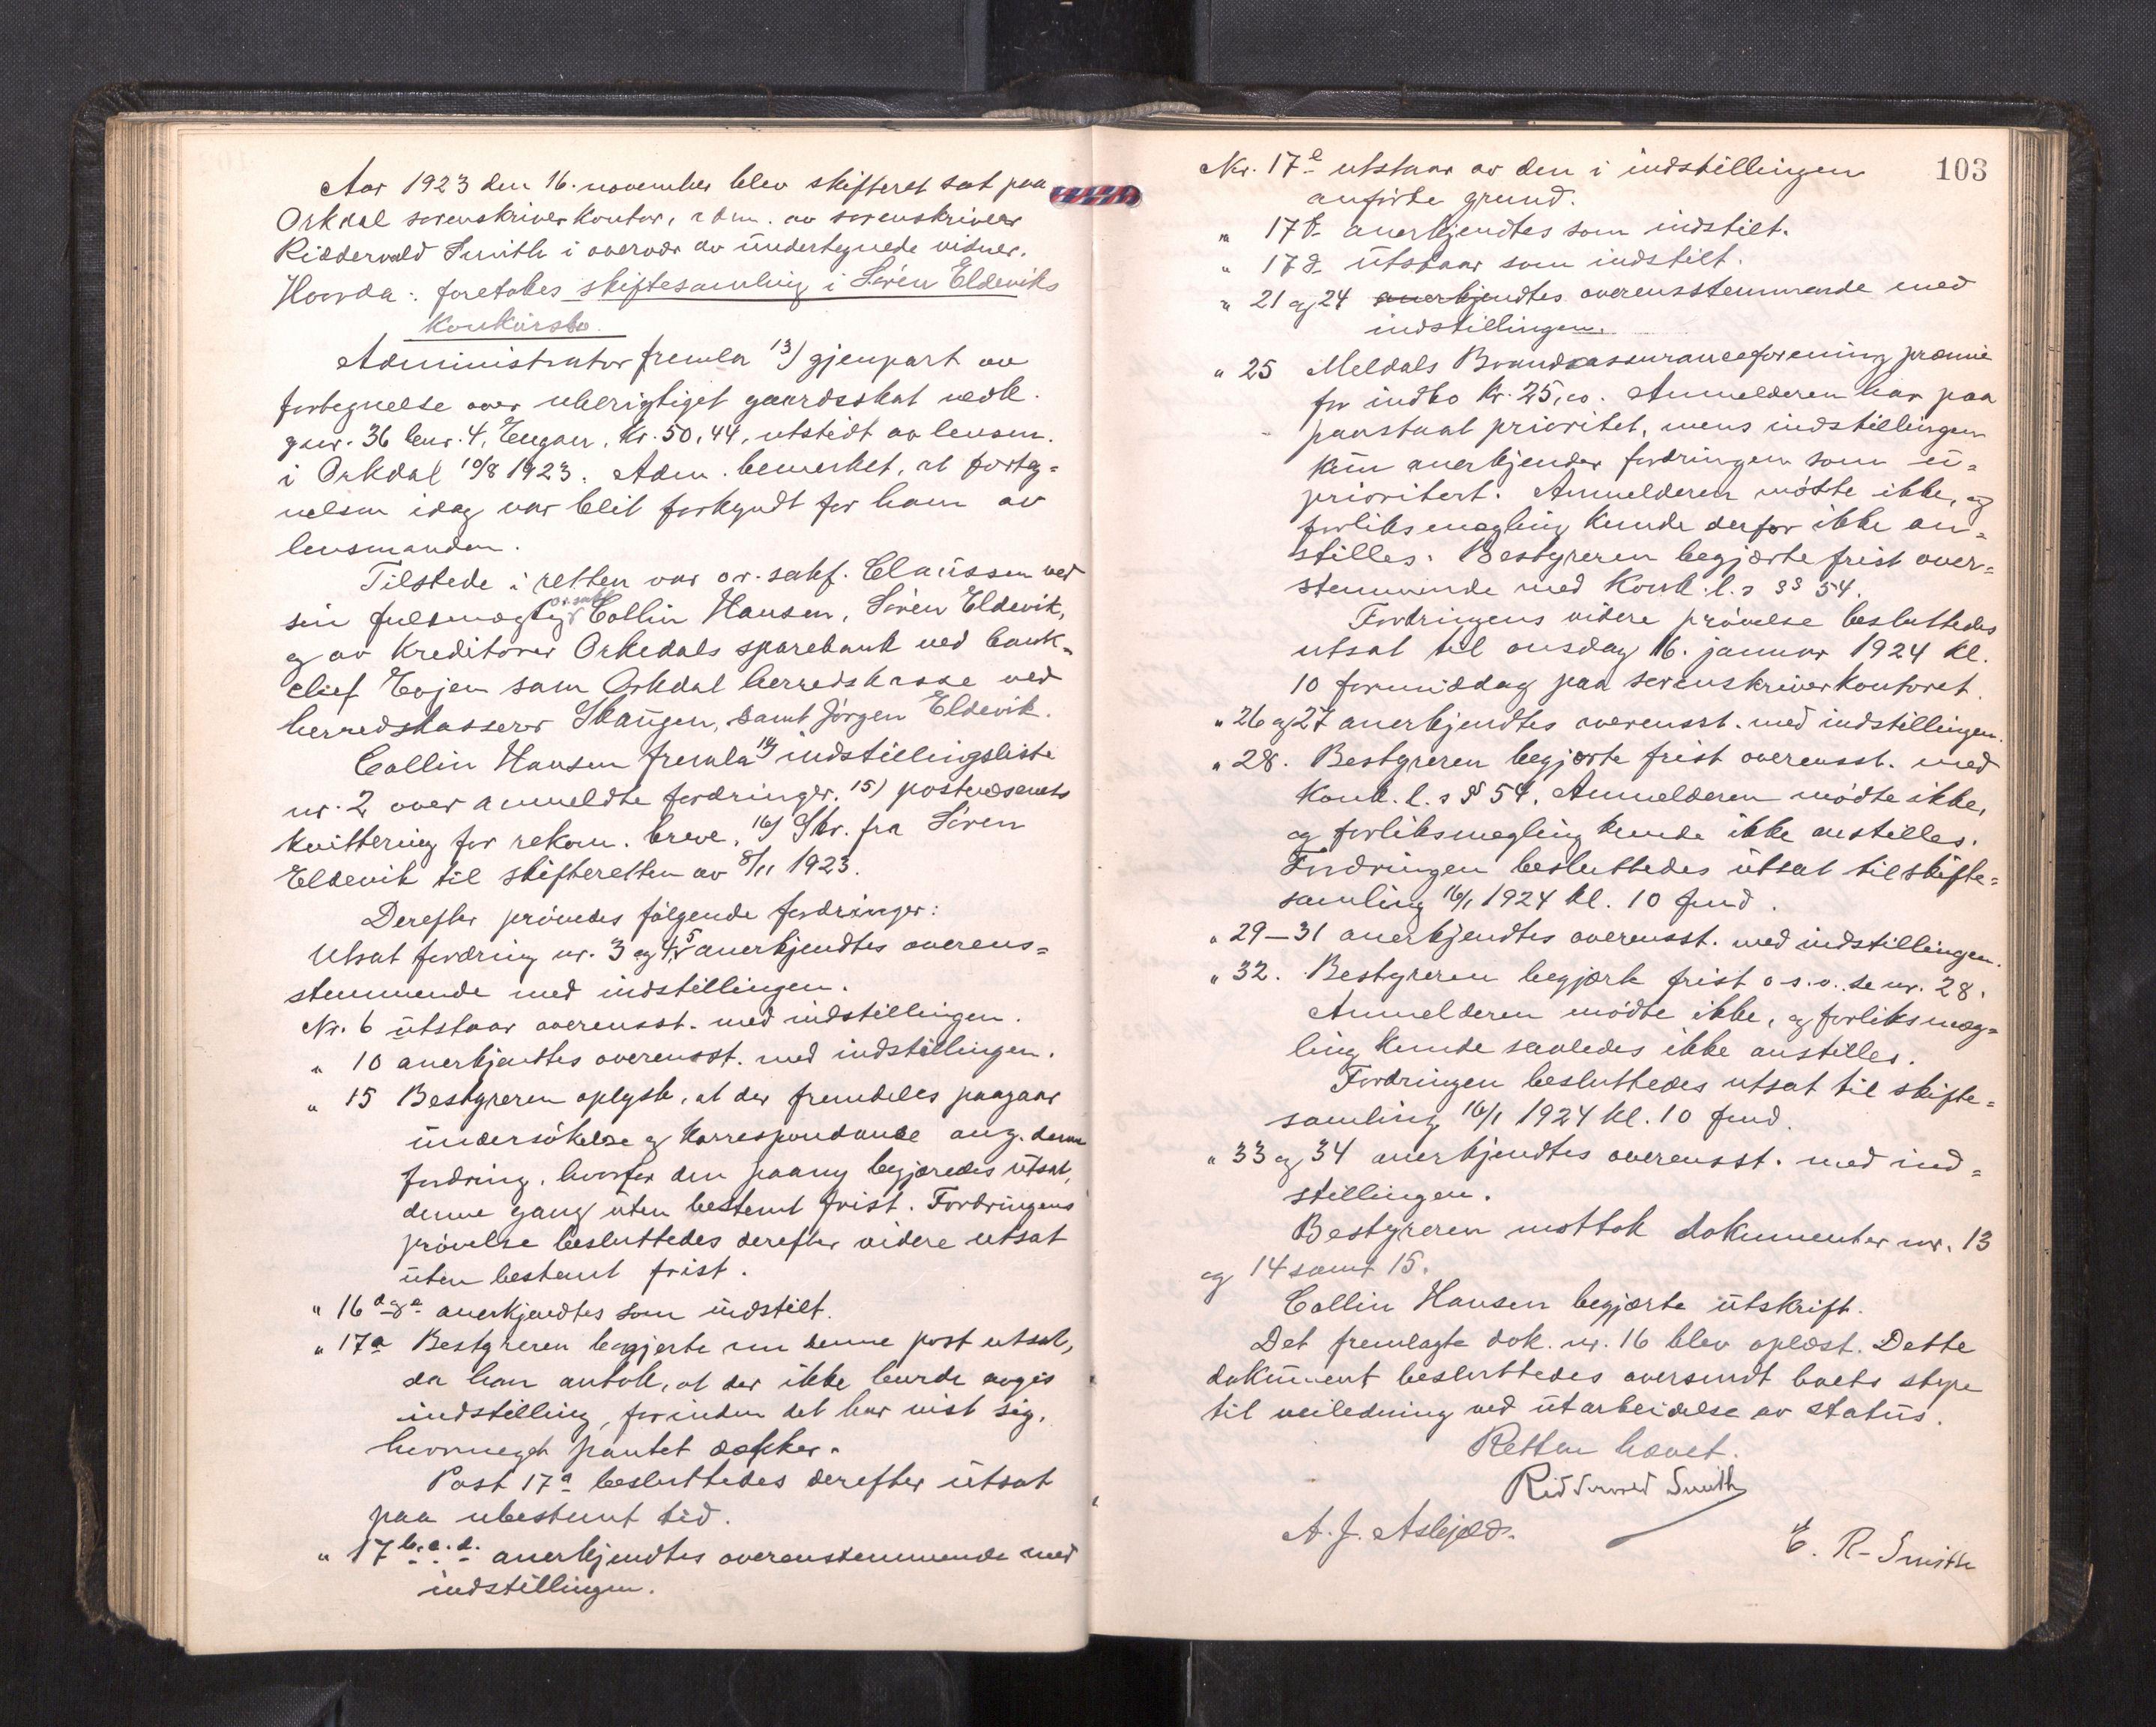 Aar 1923 den 16. november blev skifteret sat paa
Orkdal sorenskriverkontor, adm. av sorenskriver
Riddervold Smith i overvær av undertegnede vidner.
Hvorda: foretokes skiftesamling i Sören Eldeviks
Konkursbo.
Administrator fremla 13) gjenpart av
fortegnelse over uberigtiget gaardsskat vedk.
gnr. 36 bnr. 4, Engan, kr. 50,44, utstedt av lensm.
i Orkdal 10/8 1923. Adm. bemerket, at forteg=
nelsen idag var blit forkyndt for ham av
lensmanden.
Tilstede i retten var o.r. sakf. Claussen ved
sin fuldmægtig o.r. sakf. Collin Hansen, Sören Eldevik,
og av kreditorer Orkedals sparebank ved bank=
chef Evjen samt Orkdal herredskasse ved
herredskasserer Skaugen, samt Jörgen Eldevik.
Collin Hansen fremla 14) indstillingsliste
nr. 2 over anmeldte fordringer. 15) postvæsenets
kvittering for rekom. breve. 16) Skr. fra Sören
Eldevik til skifteretten av 8/11 1923.
Derefter prövedes fölgende fordringer:
Utsat fordring nr. 3 og 4, 5 anerkjendtes overens=
stemmende med indstillingen.
Nr. 6 utstaar overensst. med indstillingen.
" 10 anerkjentes overensst. med indstillingen.
" 15 Bestyreren oplyste, at der fremdeles paagaar
undersökelse og korrespondance ang. denne
fordring, hvorfor den paany begjæredes utsat,
denne gang uten bestemt frist. Fordringens
prövelse besluttedes derefter videre utsat
uten bestemt frist.
" 16 d og e anerkjendtes som indstilt.
" 17a Bestyreren begjærte nu denne post utsat,
da han antok, at der ikke burde avgis
indstilling, forinden det har vist sig,
hvormeget pantet dækker.
Post 17a besluttedes derefter utsat
paa ubestemt tid.
" 17 b. c. d. anerkjendtes overensstemmende med
indstillingen.
103
Nr. 17e utstaar av den i indstillingen
anförte grund.
" 17f anerkjendtes som indstilt.
" 17g utstaar som indstilt.
" 21 og 24 anerkjendtes overensstemmende med
indstillingen.
" 25 Meldals Brandassuranceforening præmie
for indbo kr. 25,00. Anmelderen har paa
paastaat prioritet, mens indstillingen
kun anerkjender fordringen som u=
prioritert. Anmelderen mötte ikke, og
forliksmægling kunde derfor ikke an=
stilles. Bestyreren begjærte frist over=
stemmende med Konk.l.s §§ 54.
Fordringens videre prövelse besluttedes
utsat til onsdag 16. januar 1924 kl.
10 formiddag paa sorenskriverkontoret.
" 26 og 27 anerkjendtes overensst. med indstillingen.
" 28. Bestyreren begjærte frist overensst. med
Konk.l.s § 54. Anmelderen mödte ikke,
og forliksmægling kunde ikke anstilles.
Fordringen besluttedes utsat til skifte=
samling 16/1 1924 kl. 10 fmd.
" 29–31 anerkjendtes overensst. med indstillingen.
" 32. Bestyreren begjærte frist o.s.v. se nr. 28.
Anmelderen mödte ikke, og forliksmæg=
ling kunde saaledes ikke anstilles.
Fordringen besluttedes utsat til skifte=
samling 16/1 1924 kl. 10 fmd.
" 33 og 34 anerkjendtes overensst. med ind=
stillingen.
Bestyreren mottok dokumenter nr. 13
og 14 samt 15.
Collin Hansen begjærte utskrift.
Det fremlagte dok. nr. 16 blev oplæst. Dette
dokument besluttedes oversendt boets styre
til veiledning ved utarbeidelse av status.
Retten hævet.
Riddervold Smith
A. J. Asbjøld.
E. R. Smith